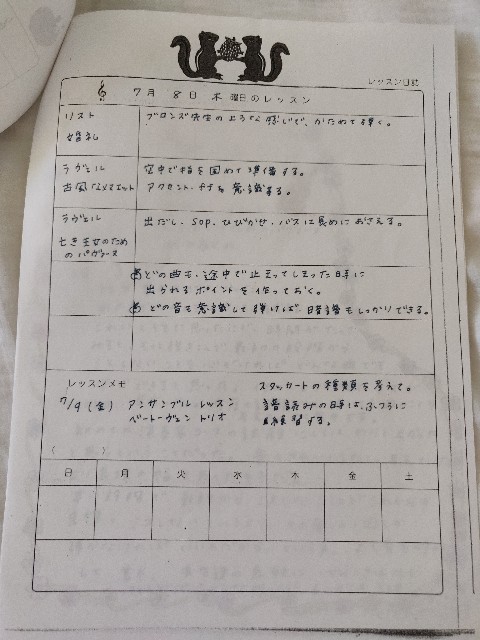 レッスン日誌
7月 8日 木 曜日のレッスン
リスト
婚礼
ブロンズ先生のような感じで、かためて弾く。
ラヴェル
古風なメヌエット
空中で指を固めて準備する。
アクセント、ffを意識する。
ラヴェル
亡き王女のため
のパヴァーヌ
出だし、sop. ひびかせ、バスは長めにおさえる。
どの曲も、途中で止まってしまった時に
出られるポイントを作っておく。
どの音も意識して弾けば、暗譜もしっかりできる。
レッスンメモ
7/9 (金) アンサンブル レッスン
ベートーヴェン トリオ
スタッカートの種類を考えて。
譜読みの時は、ふつうに
練習する。
( )
日 月 火 水 木 金 土